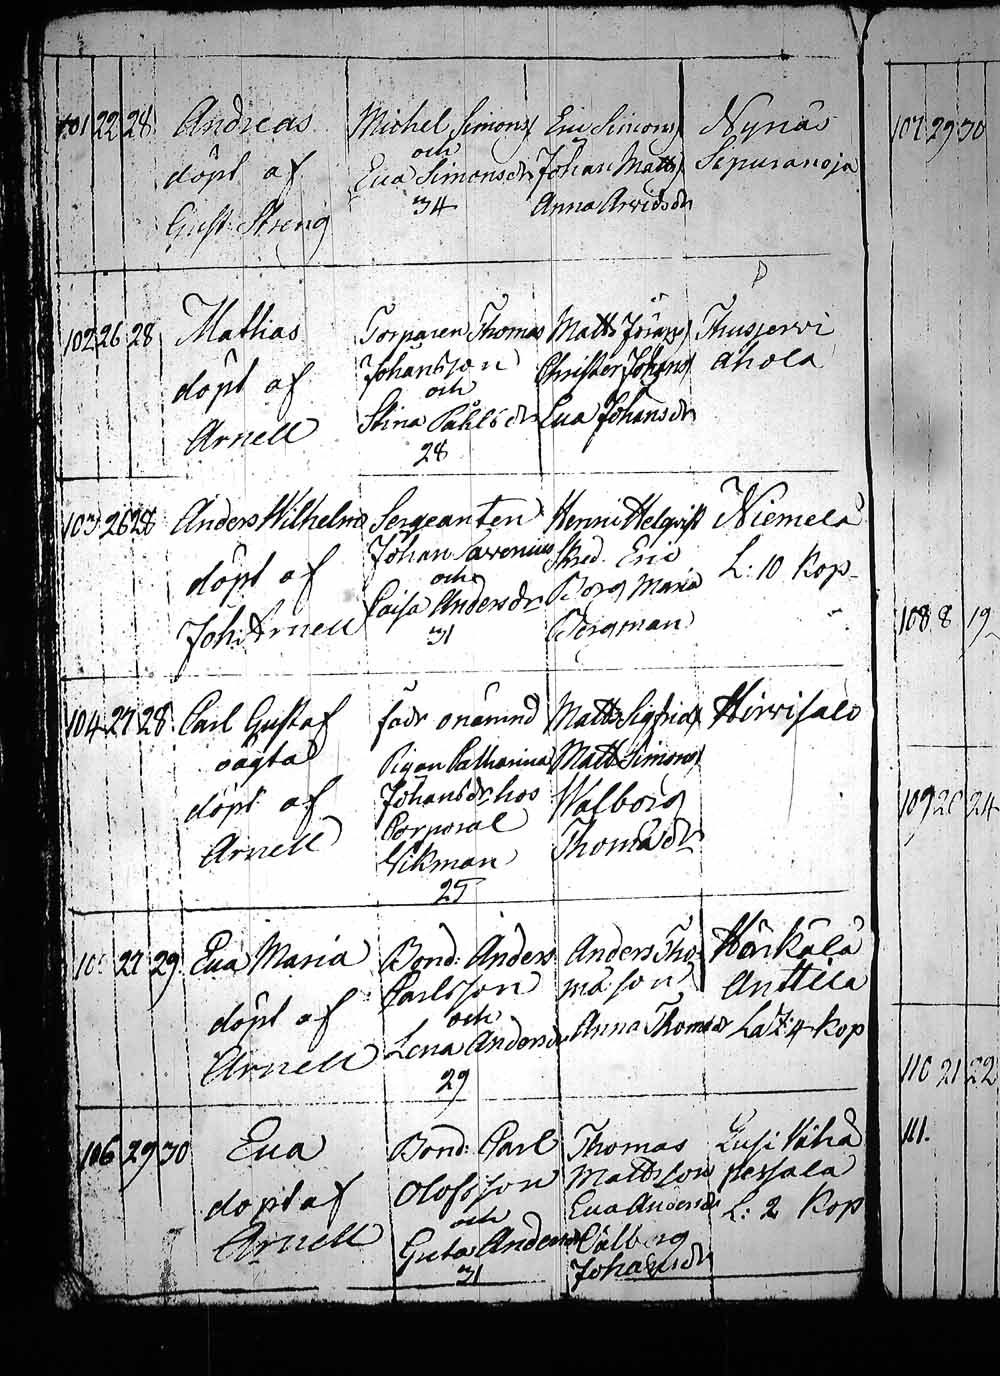 101 22 28 Andreas
döpt af
Gust: Streng
Michel Simons
och
Eva Simonsdr
34
Eric Simons
Johan Matts
Anna Arvidsdr
Nynäs
Sepuranoja
102 26 28 Mathias
döpt af
Arnell
Torparen Thomas
Johansson
och
Stina Påhlsdr
28
Matts
Christer Johans
Eva Johansdr
Thusjervi
ahola
103 26 28 Anders Wilhelm
döpt af
Joh: Arnell
Sergeanten
Johan
och
Caisa Andersdr
31
Henric Helqvist
Skred. Eric
Borg Maria
Bergman
Niemelä
L: 10 kop
104 27 28 Carl Gustaf
oägta
döpt af
Arnell
fadr onämnd
Pigan Catharina
Johansdr hos
Corporal
Vikman
25
Matts Sigfrids
Matts Simons
Walborg
Thomasdr
Hirvisalo
10 27 29 Eva Maria
döpt af
Arnell
Bond: Anders
Carlsson
och
Lena Andersdr
29
Anders Tho
masson
Anna Thomasdr
Härkälä
Anttila
4 kop
106 29 30 Eva
döpt af
Arnell
Bond: Carl
Olofsson
och
Greta Andersdr
31
Thomas
Mattsson
Eva Andersdr
Valborg
Johansdr
Lusi Vähä
L: 2 kop
107 29 30
108 8 19
109 20 24
110 21 22
111.